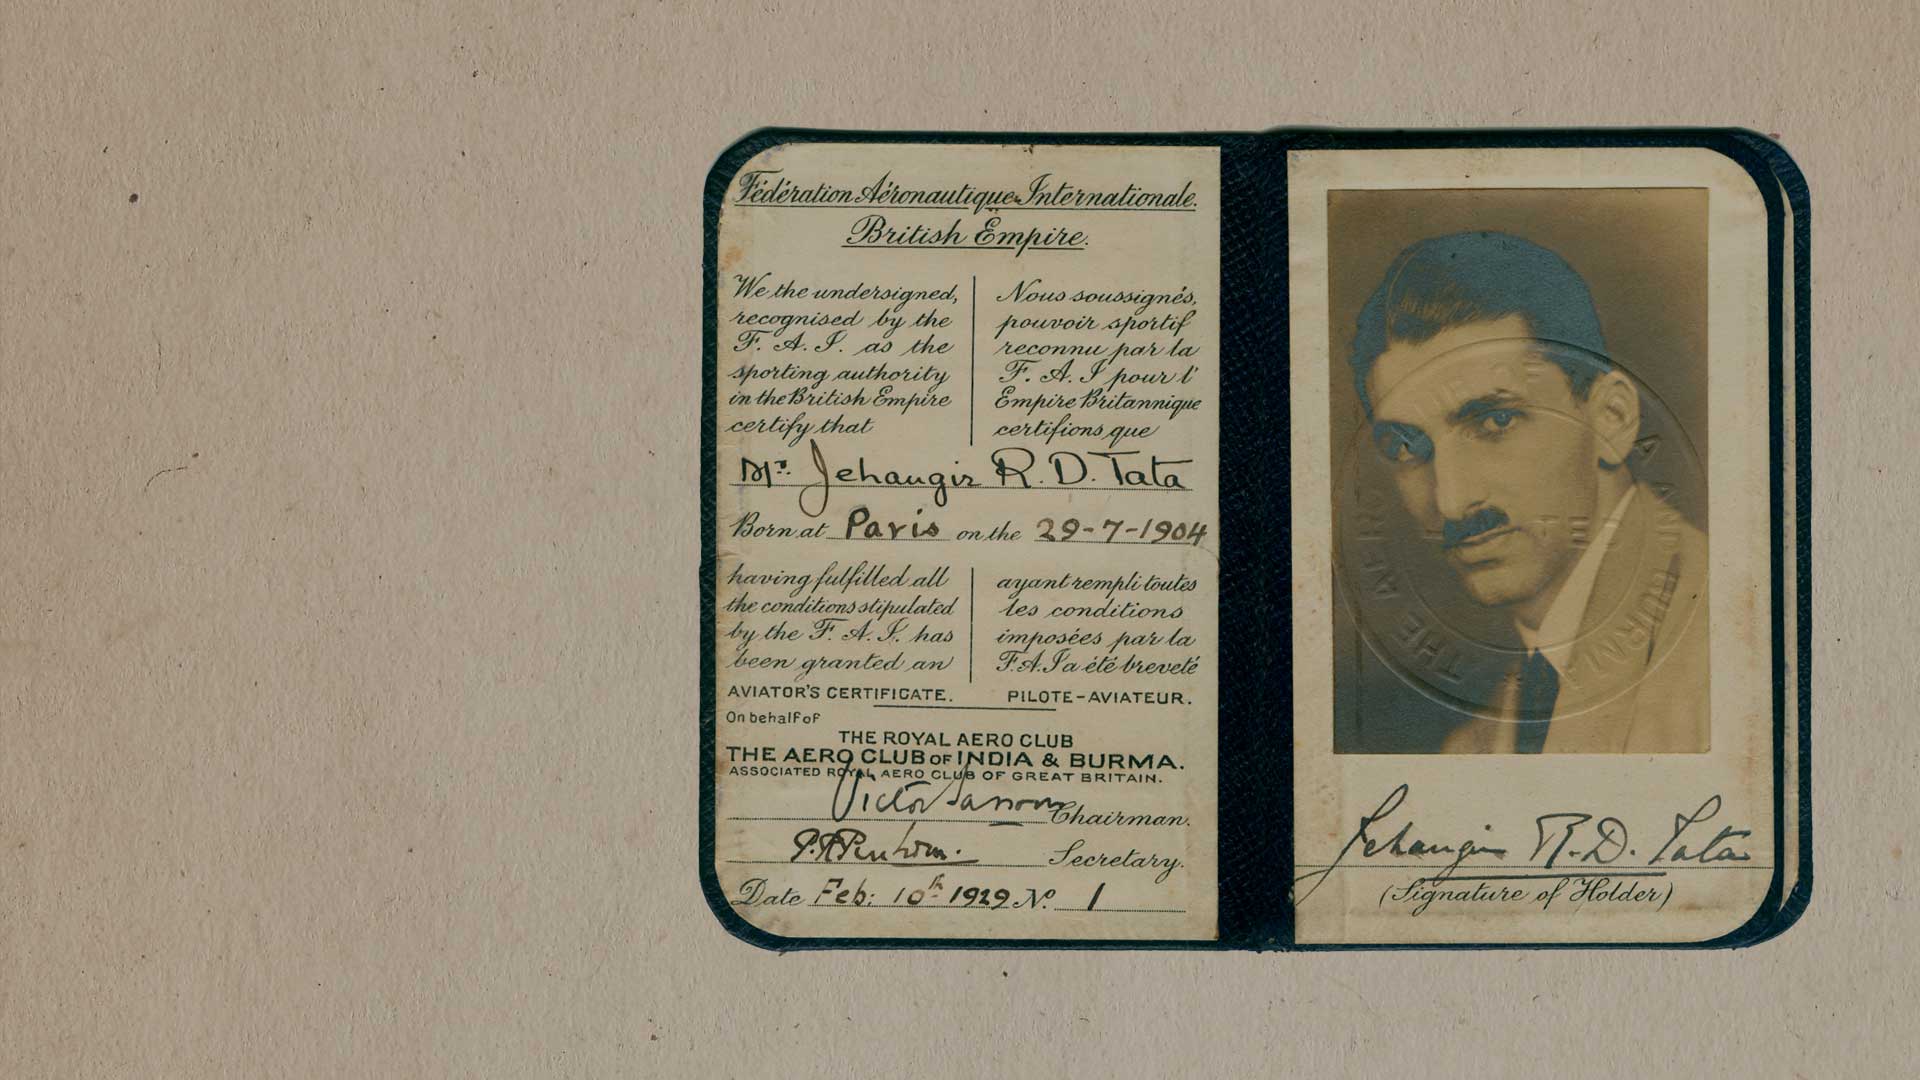 Fédération Aéronautique Internationale.
British Empire.
We the undersigned,
recognised by the
F. A. I. as the
sporting authority
in the British Empire
certify that
Nous soussignés,
pouvoir sportif
reconnu par la
F. A. I pour l'
Empire Britannique
certifions que
Mr. Jehangir R. D. Tata
Born at Paris on the 29-7-1904
having fulfilled all
the conditions stipulated
by the F. A. I. has
been granted an
AVIATOR'S CERTIFICATE.
ayant rempli toutes
les conditions
imposées par la
F. A. I a été breveté
PILOTE-AVIATEUR.
On behalf of
THE ROYAL AERO CLUB
THE AERO CLUB OF INDIA & BURMA.
ASSOCIATED ROYAL AERO CLUB OF GREAT BRITAIN.
Victor Sassoon Chairman.
Secretary.
Date Feb: 10th 1929 No. 1
THE AERO
INDIA AND BURMA
Jehangir R. D. Tata
(Signature of Holder)